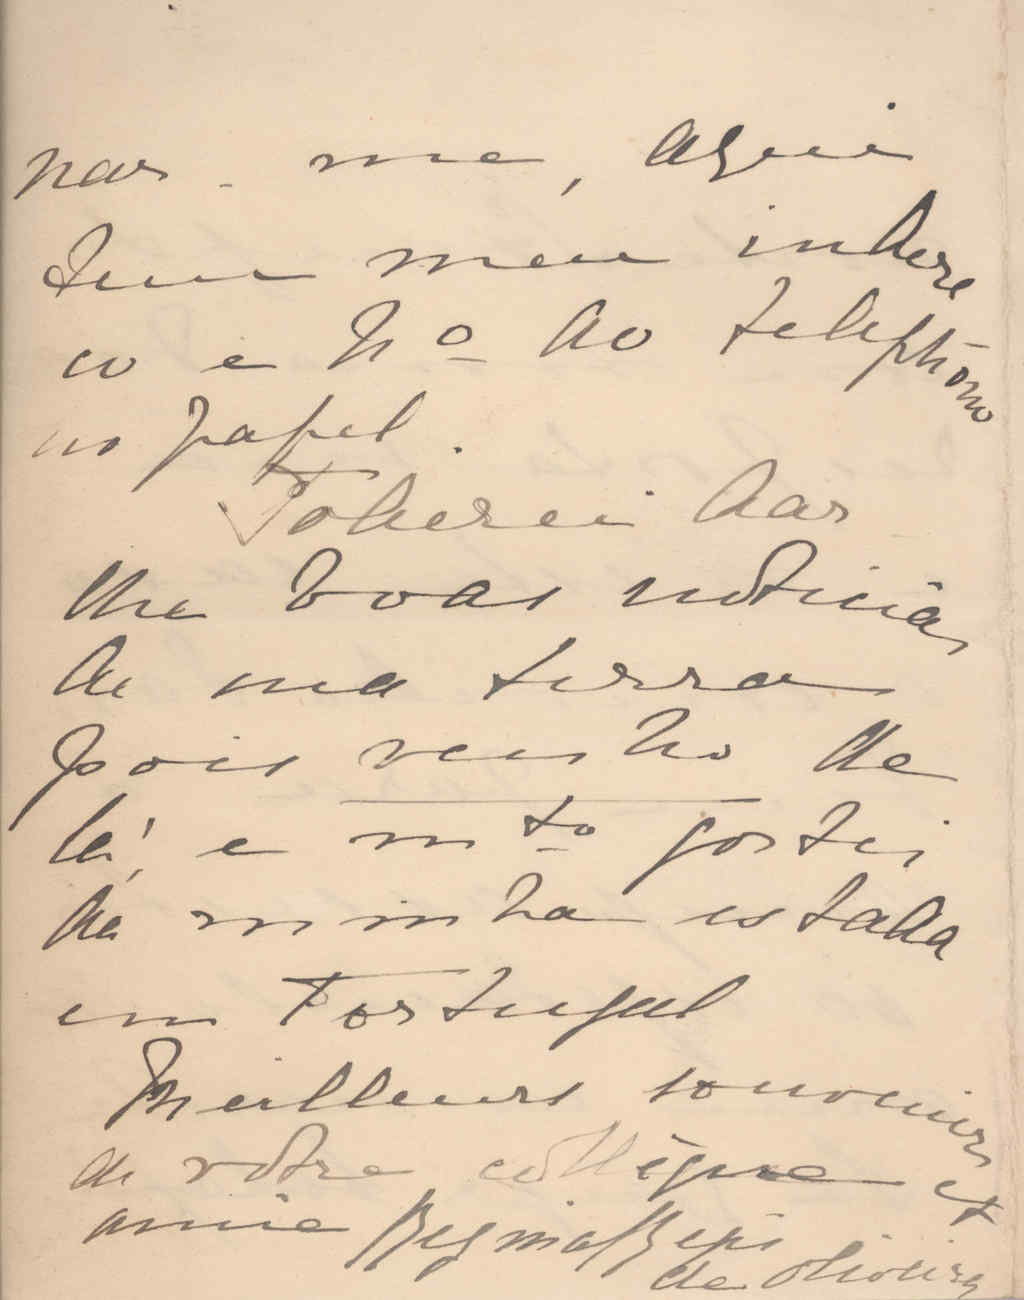 nar-me, aqui
tem meu indere
co e Nº do telephono
no papel.
Poderei dar
lhe boas noticias
de sua terra
pois venho de
lá, e mto gostei
da minha estada
em Portugal
Meilleurs souvenirs
de votre collègue et
amie Regina Regis
de Oliveira